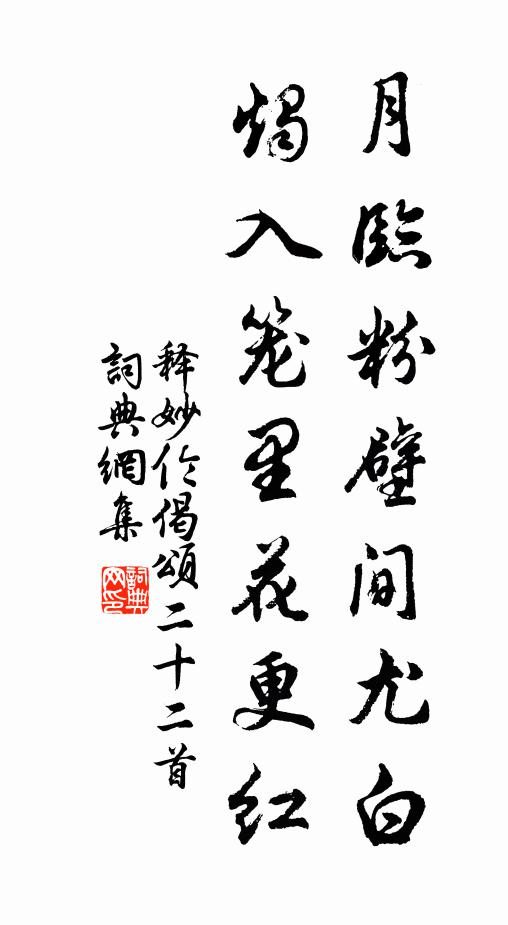 月臨粉壁间尤白
燭入笼里花更红
释妙伦偈頌二十二首
詞典網集
詞典网印